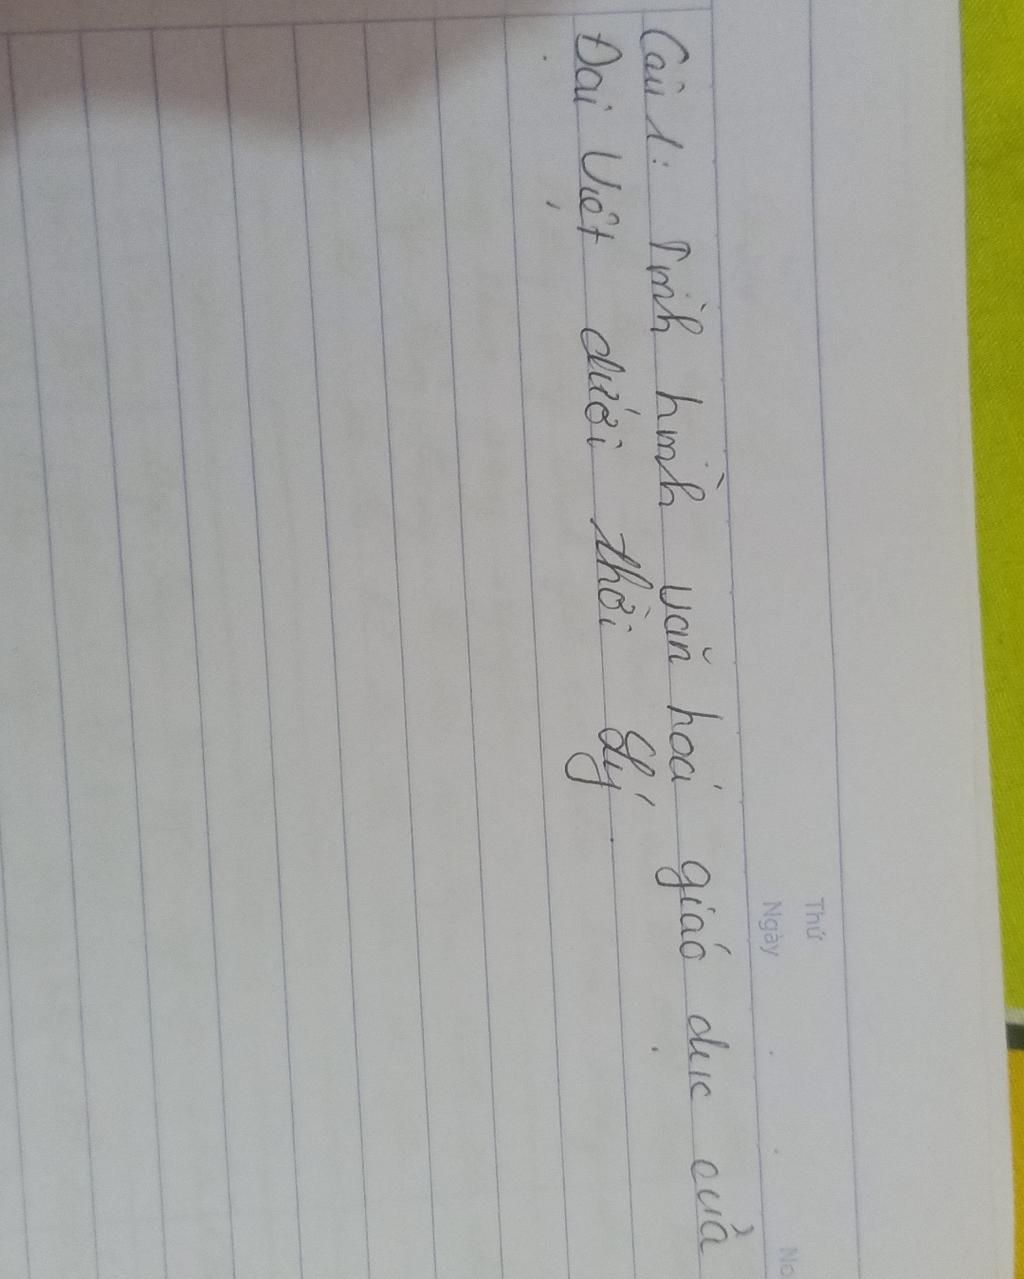 Thứ
Ngày
No
Câu 1: Tình hình văn hoá giáo dục của
Đại Việt dưới thời Lý.